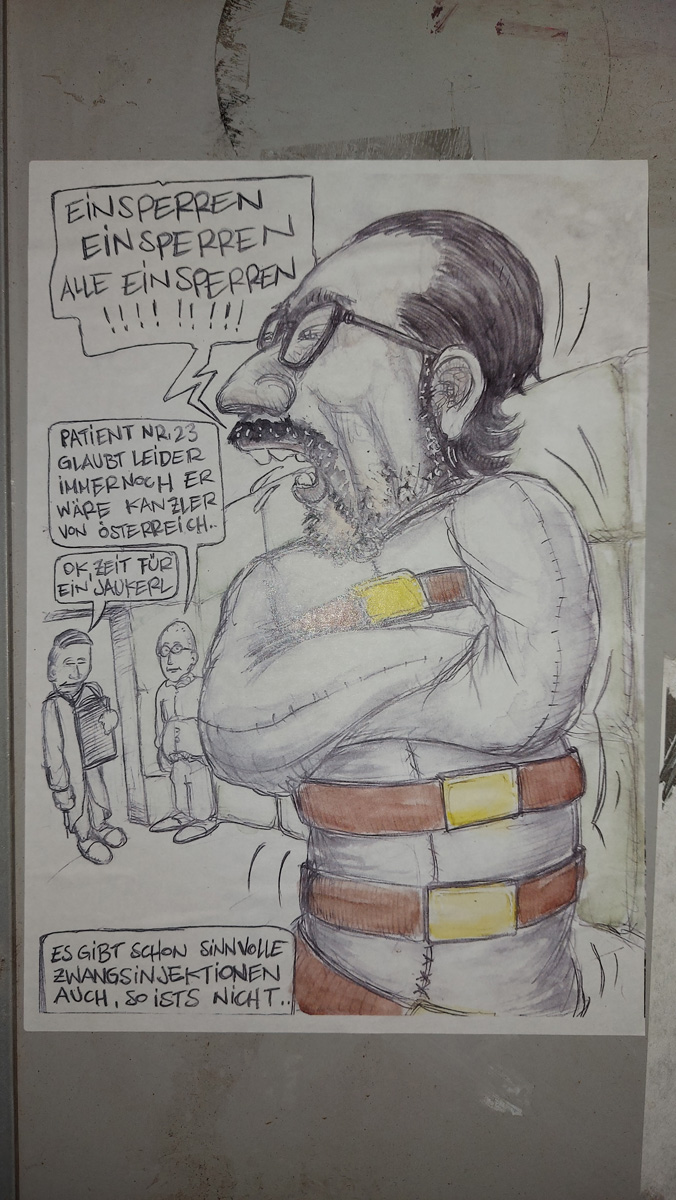 EINSPERREN
EINSPERREN
ALLE EINSPERREN
!!!! !! !!!
PATIENT NR. 23
GLAUBT LEIDER
IMMER NOCH ER
WÄRE KANZLER
VON ÖSTERREICH..
OK, ZEIT FÜR
EIN 'JAUKERL
ES GIBT SCHON SINNVOLLE
ZWANGSINJEKTIONEN
AUCH, SO ISTS NICHT..